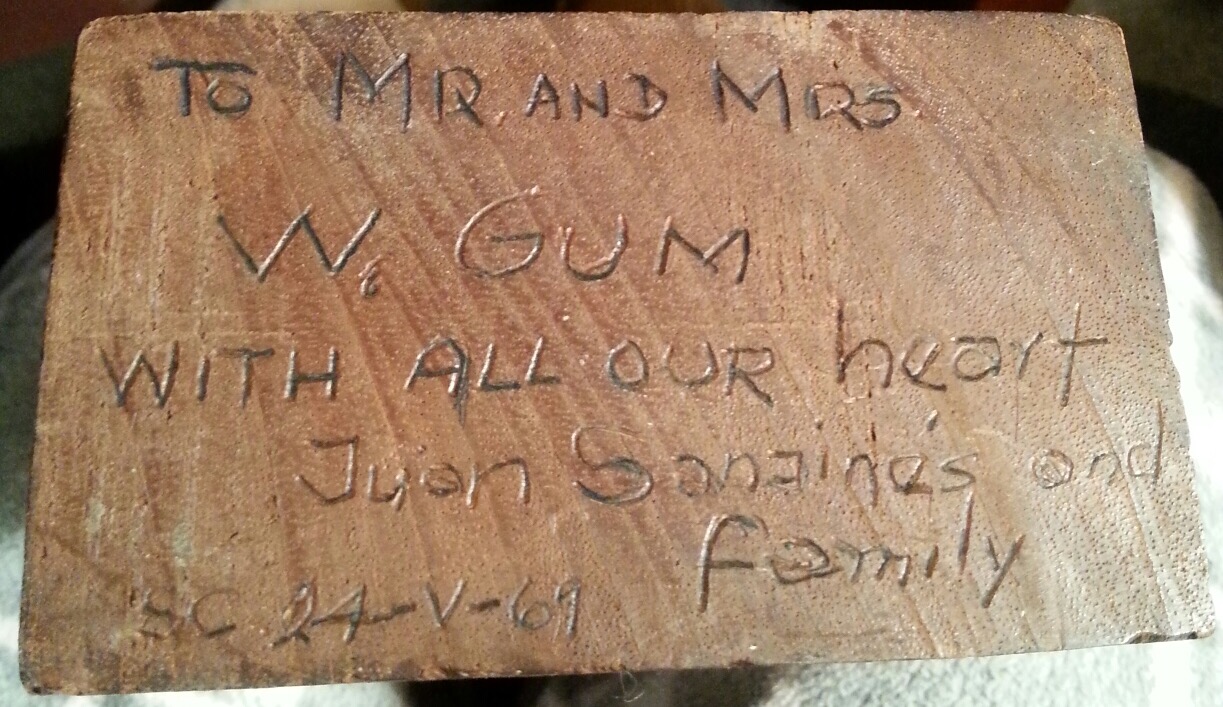 TO MR. AND MRS
W. GUM
WITH ALL OUR heart
Juan Sanzinés and
family
SC 24-V-69